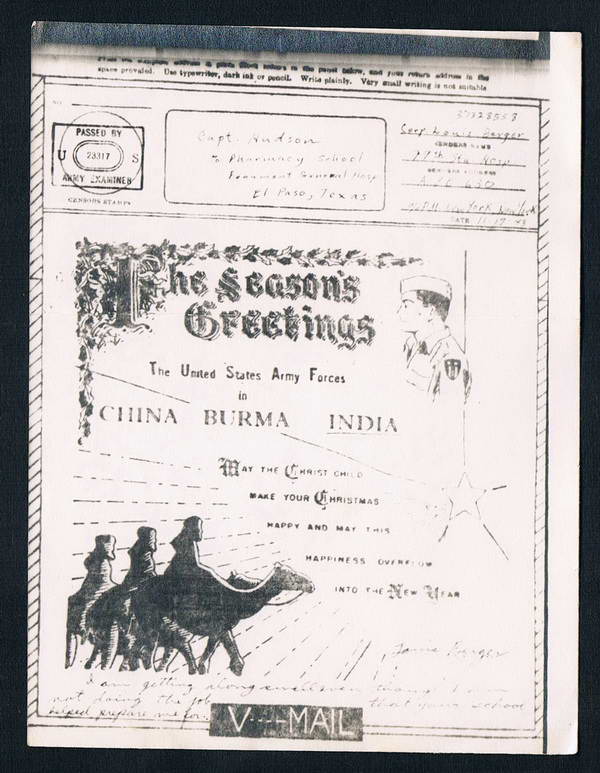 space provided. Use typewriter, dark ink or pencil. Write plainly. Very small writing is not suitable
NO.
PASSED BY
U 23317 S
ARMY EXAMINER
CENSORS STAMP
Capt. Hudson
% Pharmacy School
General Hosp
El Paso, Texas
37328558
Corp. Louis Berger
SENDERS NAME
Sta Hosp
SENDERS ADDRESS
New York
DATE
The Season's
Greetings
The United States Army Forces
in
CHINA BURMA INDIA
MAY THE CHRIST CHILD
MAKE YOUR CHRISTMAS
HAPPY AND MAY THIS
HAPPINESS OVERFLOW
INTO THE NEW YEAR
Berger
I am getting along swell even though I am
not doing the job that your school
helped prepare me for.
V----MAIL